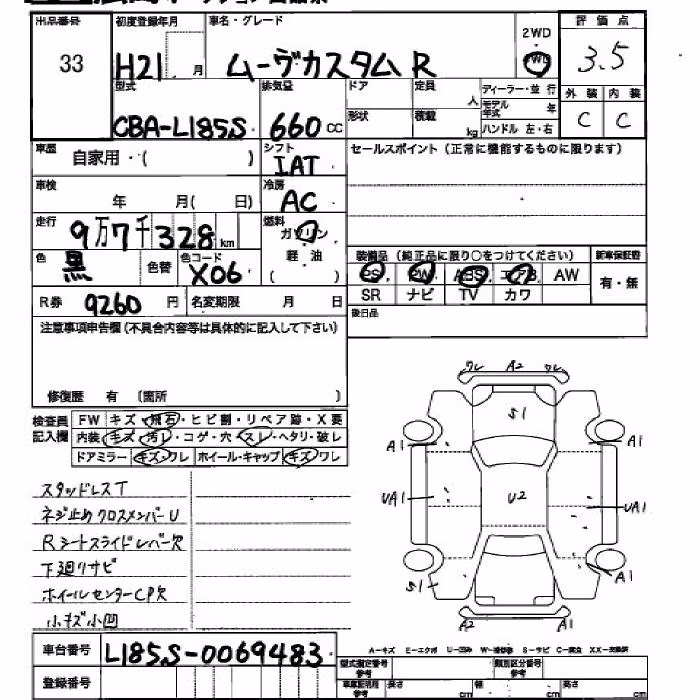 出品番号 初度登録年月 車名・グレード 2WD 4WD 評価点
33 H21 月 ムーヴカスタム R 3.5
型式 排気量 ドア 定員 人 ディーラー・並行 外装 内装
CBA-L185S 660cc 形状 積載 kg モデル年式 年 ハンドル 左・右 C C
車歴 自家用・( ) シフト IAT セールスポイント(正常に機能するものに限ります)
車検 年 月( 日) 冷房 AC
走行 9万7千328km 燃料 ガソリン
色 黒 色替 色コード X06 軽油 ( ) 装備品(純正品に限り○をつけてください) 新車保証書
PS PW ABS エアB AW 有・無
R券 9260円 名変期限 月 日 SR ナビ TV カワ
注意事項申告欄(不具合内容等は具体的に記入して下さい) 後日品
修復歴 有 〔箇所 〕
検査員記入欄 FW キズ・飛石・ヒビ割・リペア跡・X要
内装 キズ・汚レ・コゲ・穴・スレ・ヘタリ・破レ
ドアミラー キズ・ワレ ホイール・キャップ キズ・ワレ
ワレ A2 ワレ
S1
A1 A1
UA1 U2 UA1
S1 A1
A2 A1
スタッドレスT
ネジ止めクロスメンバーU
Rシートスライドレバー欠
下廻リサビ
ホイールセンターCP欠
小キズ小凹
車台番号 L185S-0069483
A-キズ E-エクボ U-凹み W-補修跡 S-サビ C-腐食 XX-交換済
登録番号
型式指定番号 参考 類別区分番号 参考
長さ cm 幅 cm 高さ cm